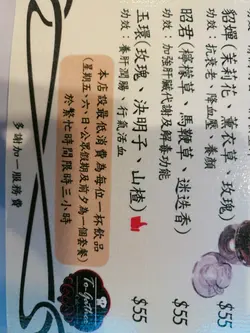 貂嬋(茉莉花、薰衣草、玫瑰)
功效：抗衰老、降血壓、養顏
$55
昭君(檸檬草、馬鞭草、迷迭香)
功效：加強肝臟代謝及解毒功能
$55
玉環(玫瑰、決明子、山楂)
功效：養肝潤腸、行氣活血
$55
本店設最低消費為每位一杯飲品
(星期五、六、日、公眾假期及前夕為一個套餐)
於繁忙時間限時三小時
多謝加一服務費